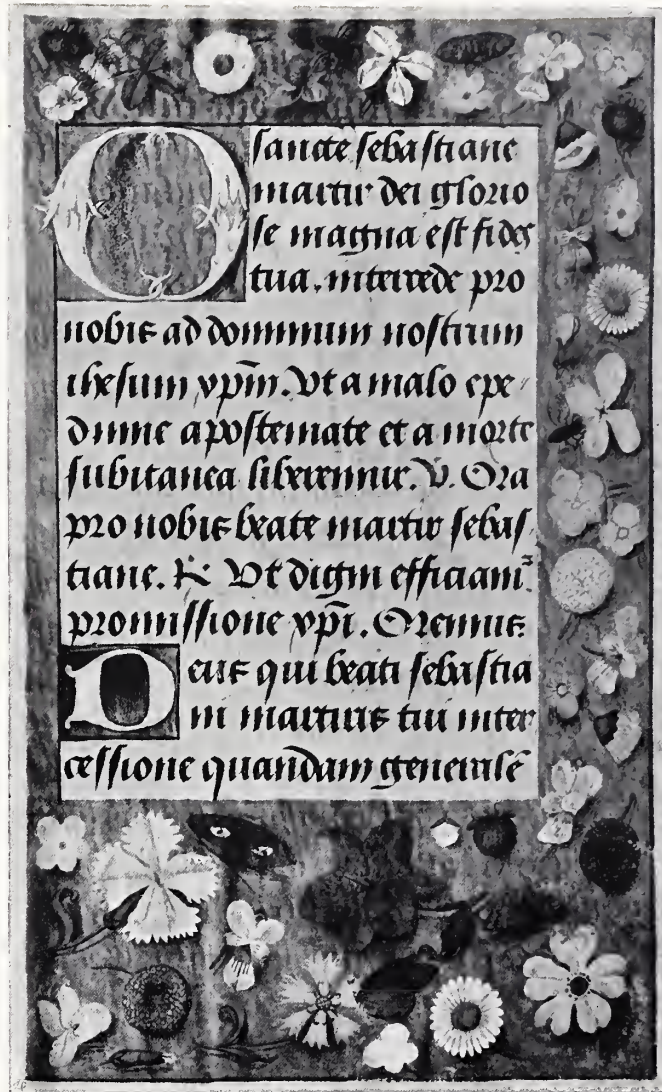 O sancte sebastiane
martir dei glorio
se magna est fides
tua, intercede pro
nobis ad dominum nostrum
ihesum xpm̄. Vt a malo epe
dimie apostemate et a morte
subitanea liberemur. V. Ora
pro nobis beate martir sebas
tiane. R Vt digni efficiam᷒
promissione xpī. Oremus
Deus qui beati sebastia
ni martiris tui inter
cessione quandam generalē